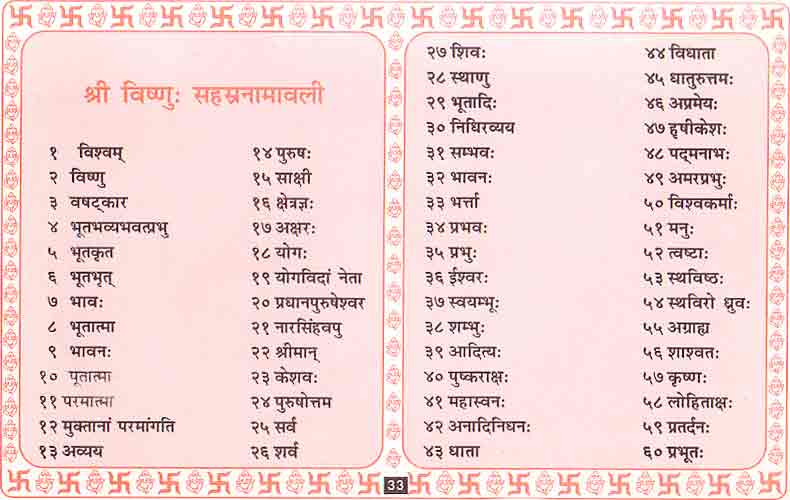 श्री विष्णुः सहस्रनामावली
१ विश्वम्
२ विष्णु
३ वषट्कार
४ भूतभव्यभवत्प्रभु
५ भूतकृत
६ भूतभृत्
७ भावः
८ भूतात्मा
९ भावनः
१० पूतात्मा
११ परमात्मा
१२ मुक्तानां परमांगति
१३ अव्यय
१४ पुरुषः
१५ साक्षी
१६ क्षेत्रज्ञः
१७ अक्षरः
१८ योगः
१९ योगविदां नेता
२० प्रधानपुरुषेश्वर
२१ नारसिंहवपु
२२ श्रीमान्
२३ केशवः
२४ पुरुषोत्तम
२५ सर्व
२६ शर्व
२७ शिवः
२८ स्थाणु
२९ भूतादिः
३० निधिरव्यय
३१ सम्भवः
३२ भावनः
३३ भर्त्ता
३४ प्रभवः
३५ प्रभुः
३६ ईश्वरः
३७ स्वयम्भूः
३८ शम्भुः
३९ आदित्यः
४० पुष्कराक्षः
४१ महास्वनः
४२ अनादिनिधनः
४३ धाता
४४ विधाता
४५ धातुरुत्तमः
४६ अप्रमेयः
४७ हृषीकेशः
४८ पद्मनाभः
४९ अमरप्रभुः
५० विश्वकर्माः
५१ मनुः
५२ त्वष्टाः
५३ स्थविष्ठः
५४ स्थविरो ध्रुवः
५५ अग्राह्य
५६ शाश्वतः
५७ कृष्णः
५८ लोहिताक्षः
५९ प्रतर्दनः
६० प्रभूतः
33